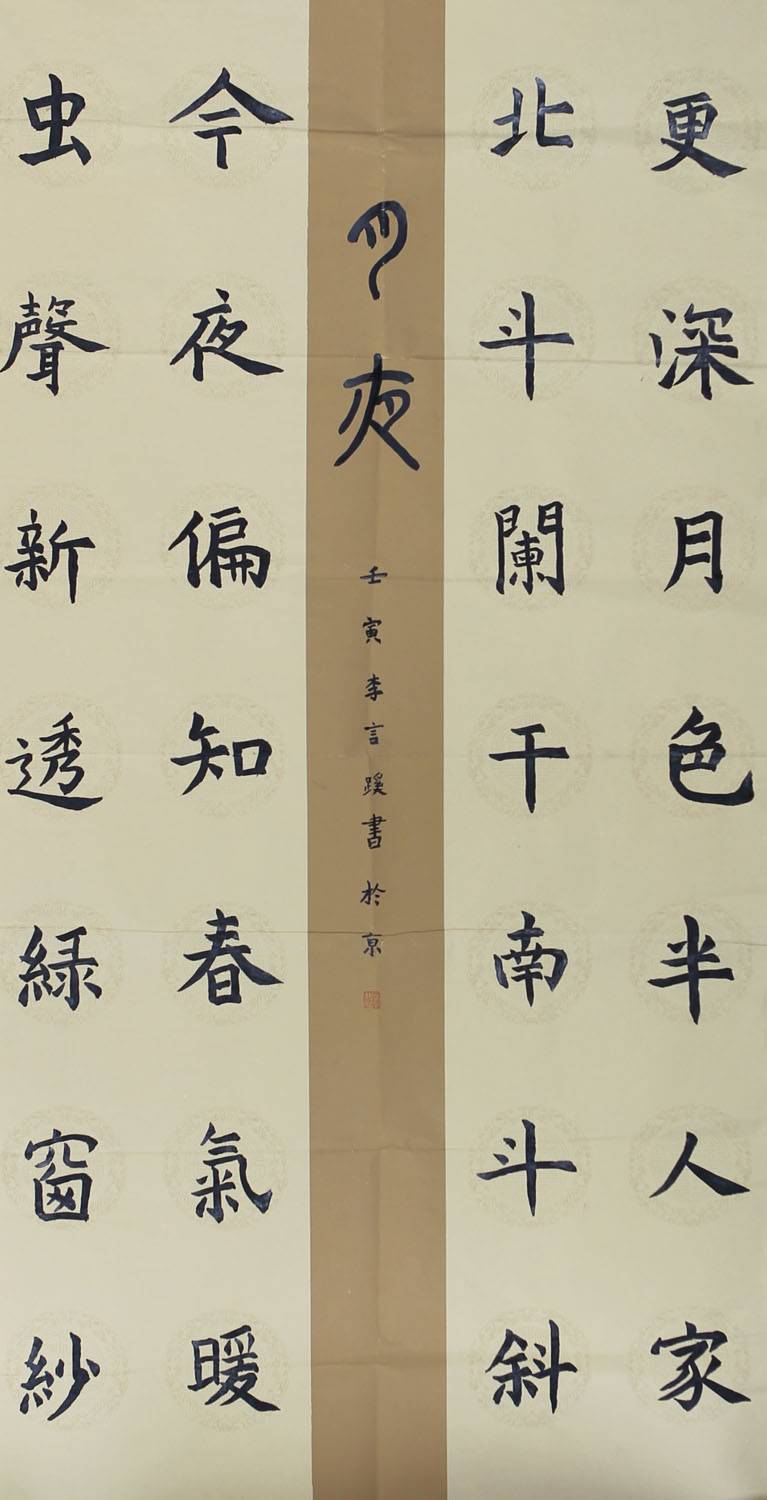 更深月色半人家
北斗闌干南斗斜
月夜
壬寅李言蹊書於京
今夜偏知春氣暖
虫聲新透綠窗紗